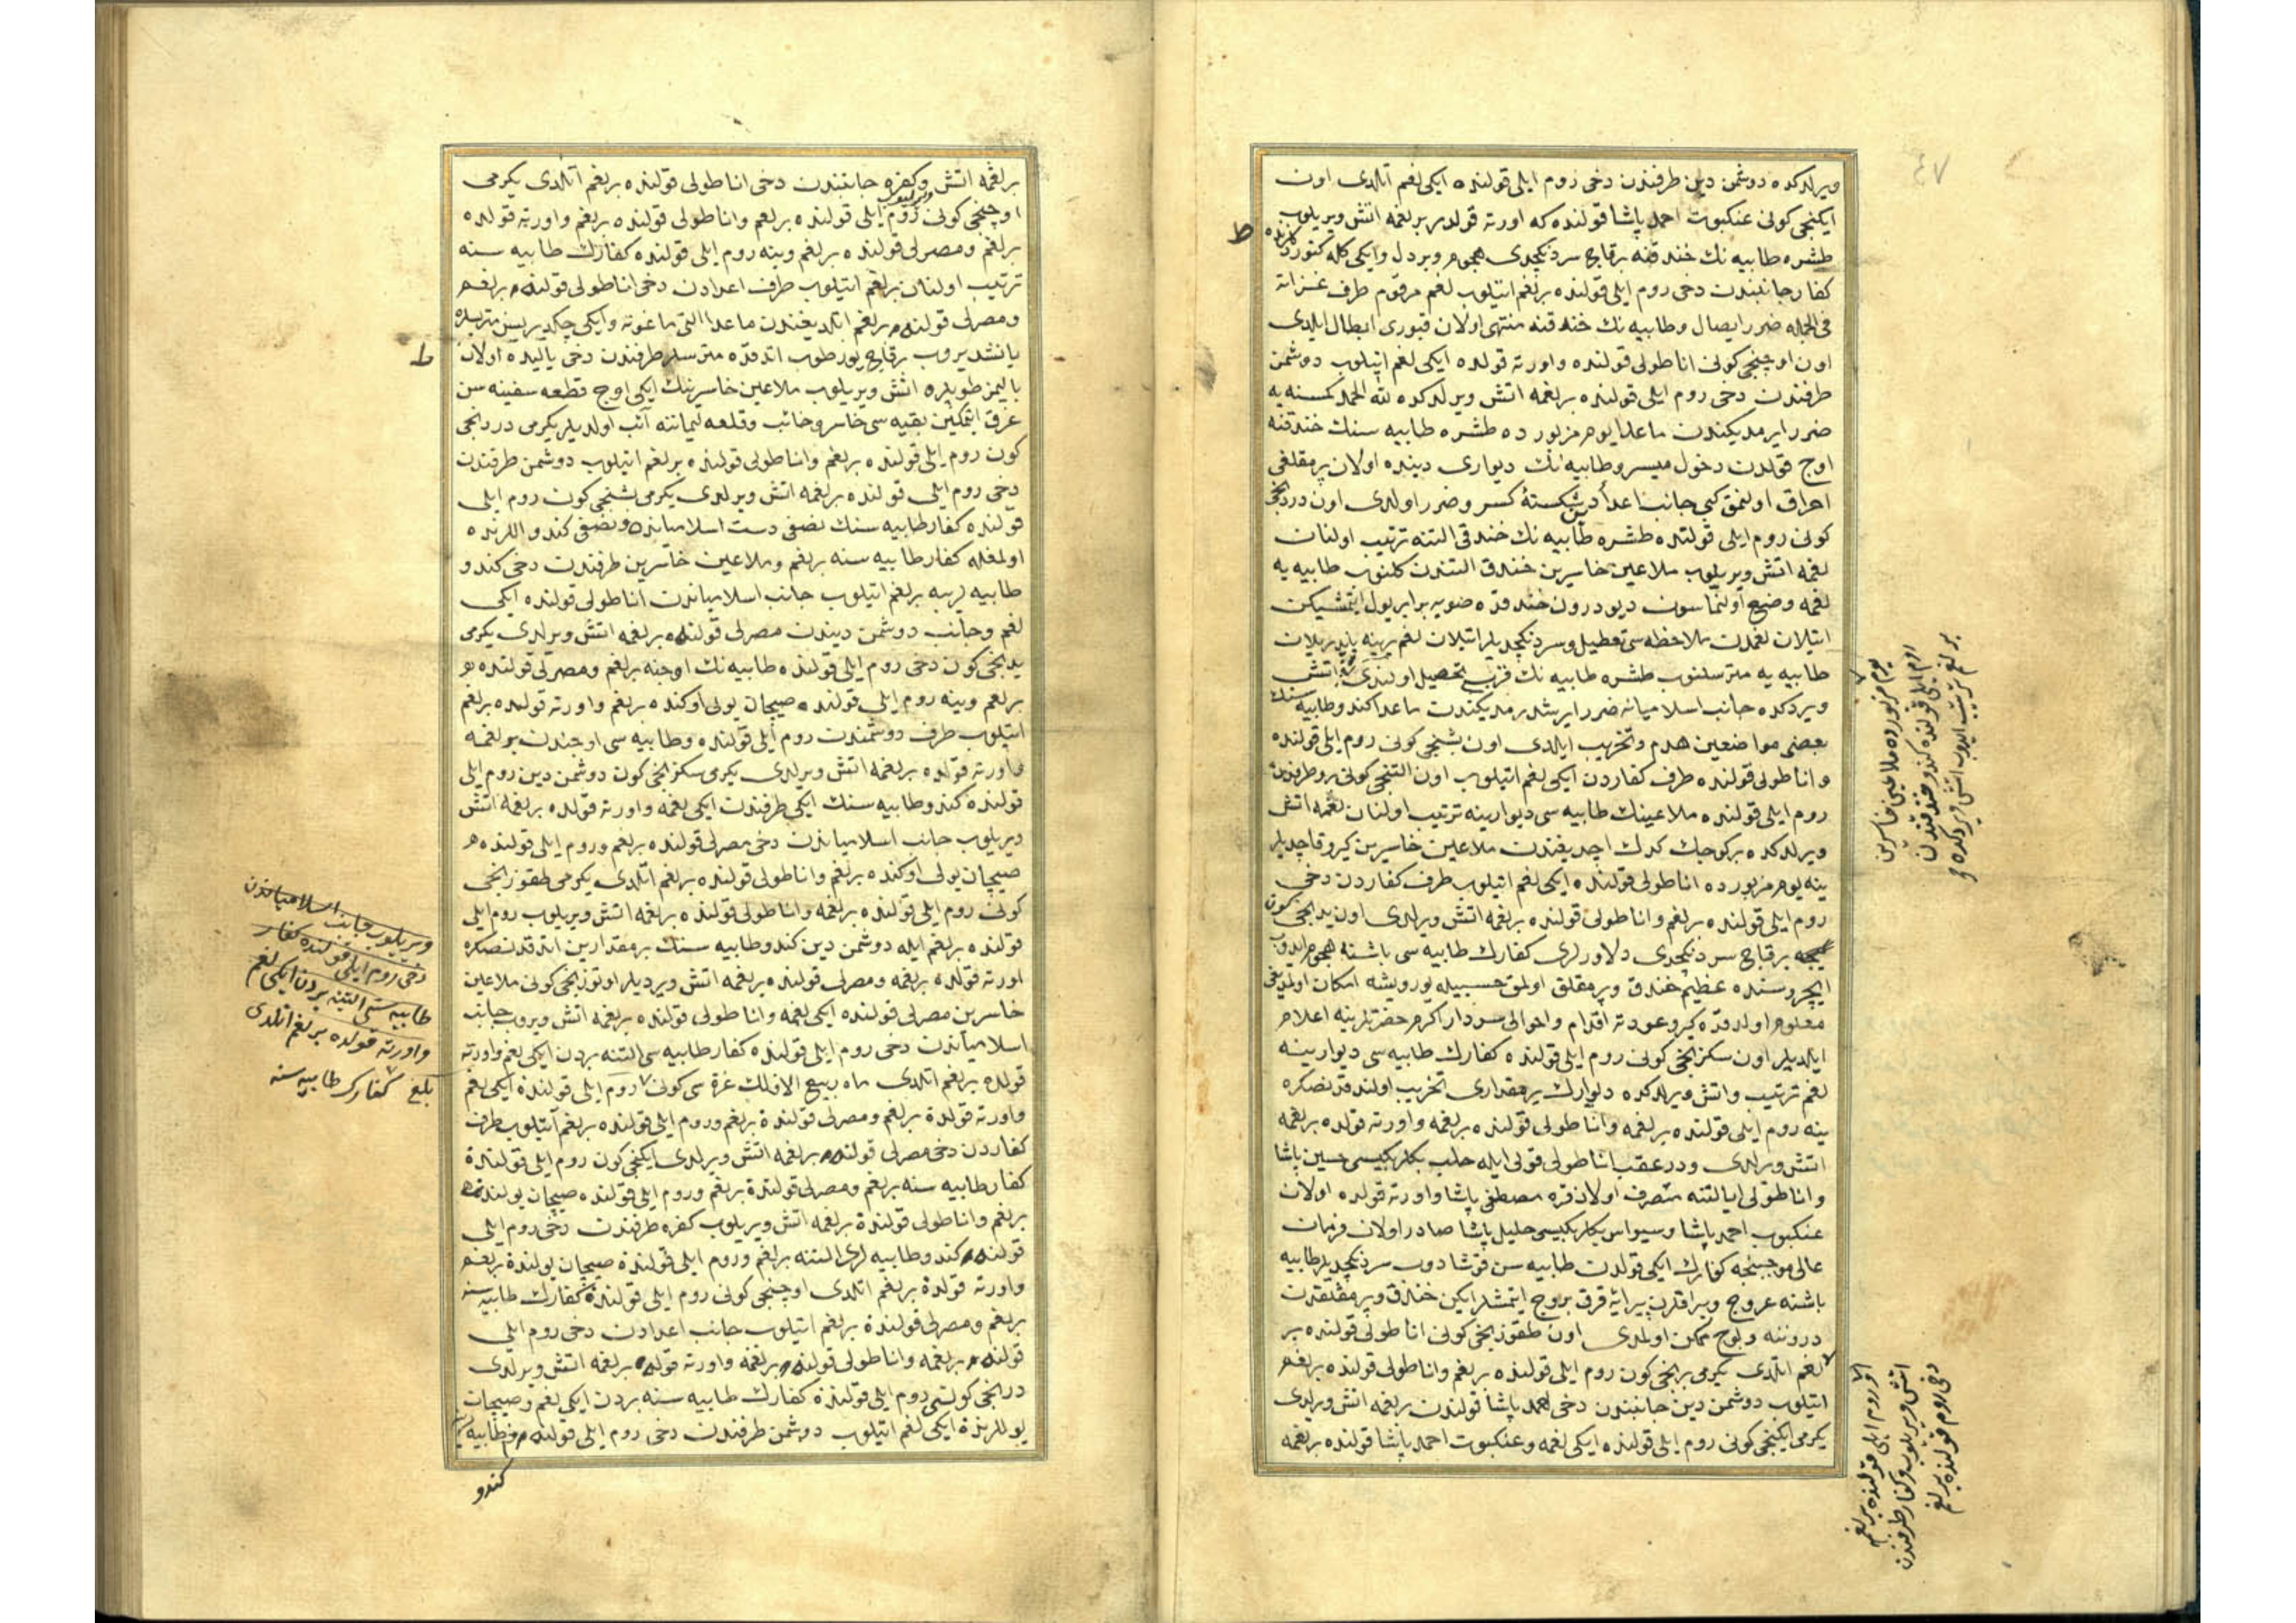 ٤٧
ویرلدکده دوشمن دین طرفندن دخی روم ایلی قولنده ایکی لغم آتلدی اون
ایکنجی کونی عنکبوت احمد پاشا قولنده که اورته قولدر بر لغمه اتش ویریلوب
طشره طابیه نك خندقنه برقاچ سردنکچدی هجوم ویردل وایکی کله کتوردیلر
کفار جانبندن دخی روم ایلی قولنده بر لغم اتیلوب لغم مرقوم طرف غزاته
فی الجمله ضرر ایصال وطابیه نك خندقنه منتهی اولان قپوری ابطال ایلدی
اون اوچنجی کونی اناطولی قولنده واورته قولده ایکی لغم اتیلوب دوشمن
طرفندن دخی روم ایلی قولنده بر لغمه اتش ویرلدکده لله الحمد کمسنه یه
ضرر ایرمدیکندن ماعدا یوم مزبورده طشره طابیه سنك خندقنه
اوچ قولدن دخول میسر وطابیه نك دیواری دیبنده اولان پرمقلغی
احراق اولنمق کبی جانب اعدا کسر وضرر اولدی اون دردنجی
کونی روم ایلی قولنده طشره طابیه نك خندقی التنه ترتیب اولنان
لغمه اتش ویریلوب ملاعین خاسرین خندق التندن کلنوب طابیه یه
لغمه وضع اولنماسون دیو درون خندقده صویه برابر یول ایتمشیکن
اتیلان لغمدن ملاحظه سی تعطیل وسردنکچدیلر اتیلان لغم یرینه یاپدیریلان
طابیه یه مترسلنوب طشره طابیه نك قربی تحصیل اولندی اتش
ویردکده جانب اسلامیانه ضرر ایرشدرمدیکندن ماعدا کندو طابیه سنك
بعضی مواضعین هدم وتخریب ایلدی اون بشنجی کونی روم ایلی قولنده
واناطولی قولنده طرف کفاردن ایکی لغم اتیلوب اون التنجی کونی
روم ایلی قولنده ملاعینك طابیه سی دیوارینه ترتیب اولنان لغمه اتش
ویرلدکده بر کوچك کدك اچدیغندن ملاعین خاسرین کیرو قاچدیلر
ینه یوم مزبورده اناطولی قولنده ایکی لغم اتیلوب طرف کفاردن دخی
روم ایلی قولنده بر لغم واناطولی قولنده بر لغمه اتش ویرلدی اون یدنجی کون
برقاچ سردنکچدی دلاورلری کفارك طابیه سی باشنه هجوم ایدوب
ایچروسنده عظیم خندق وپرمقلق اولمق حسبیله یورویشه امکان اولمدیغی
معلوم اولدقده کیرو عودته اقدام واحوالی سردار اکرم حضرتلرینه اعلام
ایلدیلر اون سکزنجی کونی روم ایلی قولنده کفارك طابیه سی دیوارینه
لغم ترتیب واتش ویرلدکده دیوارك بر مقداری تخریب اولندقدنصکره
ینه روم ایلی قولنده بر لغمه واناطولی قولنده بر لغمه واورته قولده بر لغمه
اتش ویرلدی ودر عقب اناطولی قولی ایله حلب بکلربکیسی حسین پاشا
واناطولی ایالتنه متصرف اولان قره مصطفی پاشا واورته قولده اولان
عنکبوب احمد پاشا وسیواس بکلربکیسی خلیل پاشا صادر اولان فرمان
عالی موجبنجه کفارك ایکی قولدن طابیه سن قوشادوب سردنکچدیلر طابیه
باشنه عروج وبیراقلرن پیرایۀ فرق بروج ایتمشلر ایکن خندق وپرمقلقدن
دروننه ولوج ممکن اولمدی اون طقوزنجی کونی اناطولی قولنده بر
لغم اتلدی یکرمی برنجی کون روم ایلی قولنده بر لغم واناطولی قولنده بر لغم
اتیلوب دوشمن دین جانبندن دخی احمد پاشا قولندن بر لغمه اتش ویرلدی
یکرمی ایکنجی کونی روم ایلی قولنده ایکی لغمه وعنکبوت احمد پاشا قولنده بر لغمه
یوم مزبورده ملاعین خاسرین
روم ایلی قولنده کندو خندقندن
بر لغم ترتیب ایدوب اتش ویردکده
روم ایلی قولنده بر لغم
اتش ویریلوب وکفار طرفندن
دخی روم قولنده بر لغم
بر لغمه اتش ویریلوب وکفره جانبندن دخی اناطولی قولنده بر لغم آتلدی یکرمی
اوچنجی کونی روم ایلی قولنده بر لغم واناطولی قولنده بر لغم واورته قولده
بر لغم ومصرلی قولنده بر لغم وینه روم ایلی قولنده کفارك طابیه سنه
ترتیب اولنان بر لغم اتیلوب طرف اعدادن دخی اناطولی قولنده بر لغم
ومصرلی قولنده بر لغم اتلدیغندن ماعدا التی ماغونه وایکی چکدیریسن متریسلره
یانشدیروب برقاچ یوز طوب اتدقده مترسلر طرفندن دخی یالیده اولان
بالیمز طوپلره اتش ویریلوب ملاعین خاسرینك ایکی اوچ قطعه سفینه سن
غرق ایتمکین بقیه سی خاسر وخائب وقلعه لیماننه آئب اولدیلر یکرمی دردنجی
کون روم ایلی قولنده بر لغم واناطولی قولنده بر لغم اتیلوب دوشمن طرفندن
دخی روم ایلی قولنده بر لغمه اتش ویرلدی یکرمی بشنجی کون روم ایلی
قولنده کفار طابیه سنك نصفی دست اسلامیانده ونصفی کندو اللرنده
اولمغله کفار طابیه سنه بر لغم وملاعین خاسرین طرفندن دخی کندو
طابیه لرینه بر لغم اتیلوب جانب اسلامیاندن اناطولی قولنده ایکی
لغم وجانب دوشمن دیندن مصرلی قولنده بر لغمه اتش ویرلدی یکرمی
یدنجی کون دخی روم ایلی قولنده طابیه نك اوجنه بر لغم ومصرلی قولنده
بر لغم وینه روم ایلی قولنده صیچان یولی اوکنده بر لغم واورته قولده بر لغم
اتیلوب طرف دوشمندن روم ایلی قولنده وطابیه سی اوجندن بر لغمه
واورته قولده بر لغمه اتش ویرلدی یکرمی سکزنجی کون دوشمن دین روم ایلی
قولنده کندو طابیه سنك ایکی طرفندن ایکی لغمه واورته قولده بر لغمه اتش
ویریلوب جانب اسلامیاندن دخی مصرلی قولنده بر لغم وروم ایلی قولنده
صیچان یولی اوکنده بر لغم واناطولی قولنده بر لغم اتلدی یکرمی طقوزنجی
کونی روم ایلی قولنده بر لغمه واناطولی قولنده بر لغمه اتش ویریلوب روم ایلی
قولنده بر لغم ایله دوشمن دین کندو طابیه سنك بر مقدارین اتدقدنصکره
اورته قولده بر لغمه ومصرلی قولنده بر لغمه اتش ویردیلر اوتوزنجی کونی ملاعین
خاسرین مصرلی قولنده ایکی لغمه واناطولی قولنده بر لغمه اتش ویروب جانب
اسلامیاندن دخی روم ایلی قولنده کفار طابیه سی التنه بردن ایکی لغم واورته
قولده بر لغم اتلدی ماه ربیع الاولك غره سی کونی روم ایلی قولنده ایکی لغم
واورته قولده بر لغم ومصرلی قولنده بر لغم وروم ایلی قولنده بر لغم آتیلوب طرف
کفاردن دخی مصرلی قولنده بر لغمه اتش ویرلدی ایکنجی کون روم ایلی قولنده
کفار طابیه سنه بر لغم ومصرلی قولنده بر لغم وروم ایلی قولنده صیچان یولنده
بر لغم واناطولی قولنده بر لغمه اتش ویریلوب کفره طرفندن دخی روم ایلی
قولنده کندو طابیه لری التنه بر لغم وروم ایلی قولنده صیچان یولنده بر لغم
واورته قولده بر لغم اتلدی اوچنجی کونی روم ایلی قولنده کفارك طابیه سنه
بر لغم ومصرلی قولنده بر لغم اتیلوب جانب اعدادن دخی روم ایلی
قولنده بر لغمه واناطولی قولنده بر لغمه واورته قولده بر لغمه اتش ویرلدی
دردنجی کونی روم ایلی قولنده کفارك طابیه سنه بردن ایکی لغم وصیچان
یوللرنده ایکی لغم اتیلوب دوشمن طرفندن دخی روم ایلی قولنده طابیه
کندو
ویریلوب جانب اسلامیاندن
دخی روم ایلی قولنده کفار
طابیه سی التنه بردن ایکی لغم
واورته قولده بر لغم اتلدی
کفارك طابیه سنه